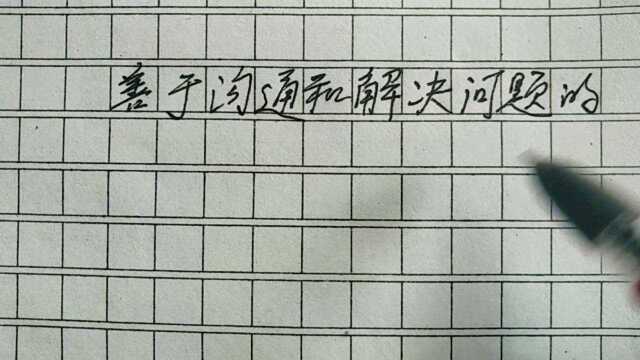 善于沟通和解决问题的